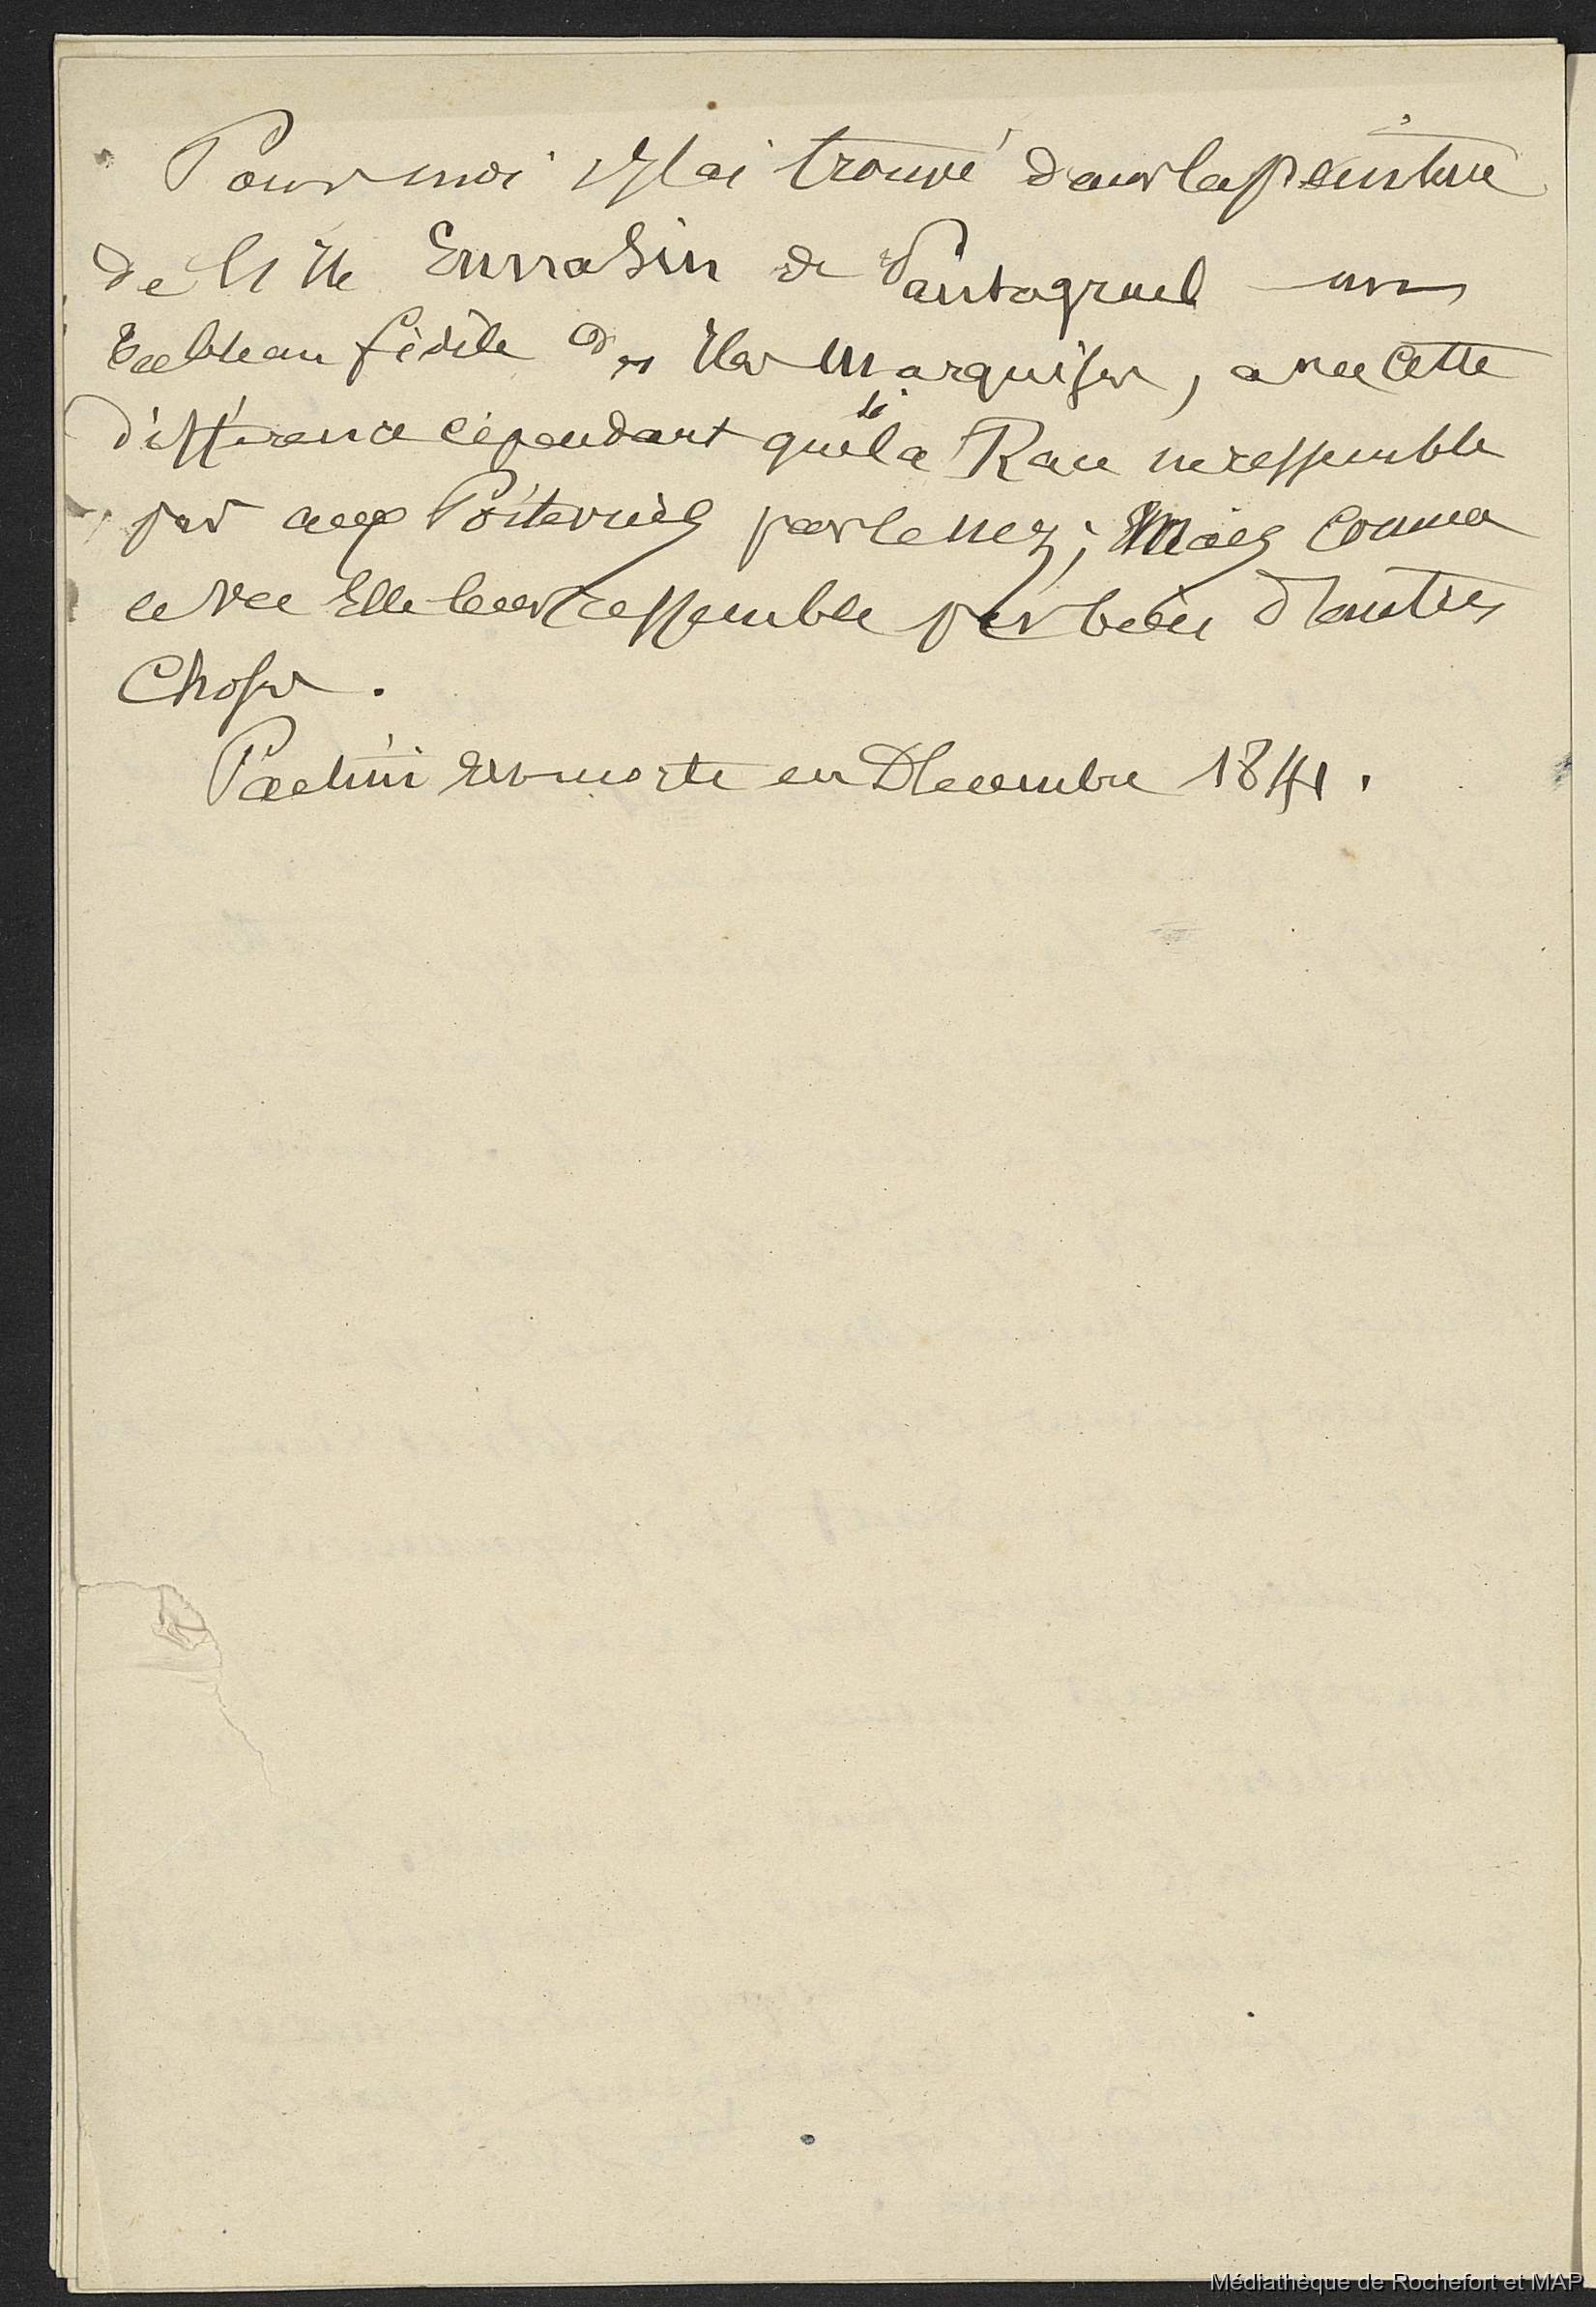 Pour moi J'ai trouvé dans la peinture
de l'île Ennasin de Pantagruel un
tableau fidèle des Iles Marquises, avec cette
différence cépendant que si la Race ne ressemble
pas aux Poitevins par le nez; Mais comme
Elle leur ressemble par bien d'autres
Choses.
est morte en Décembre 1841.
Médiathèque de Rochefort et MAP